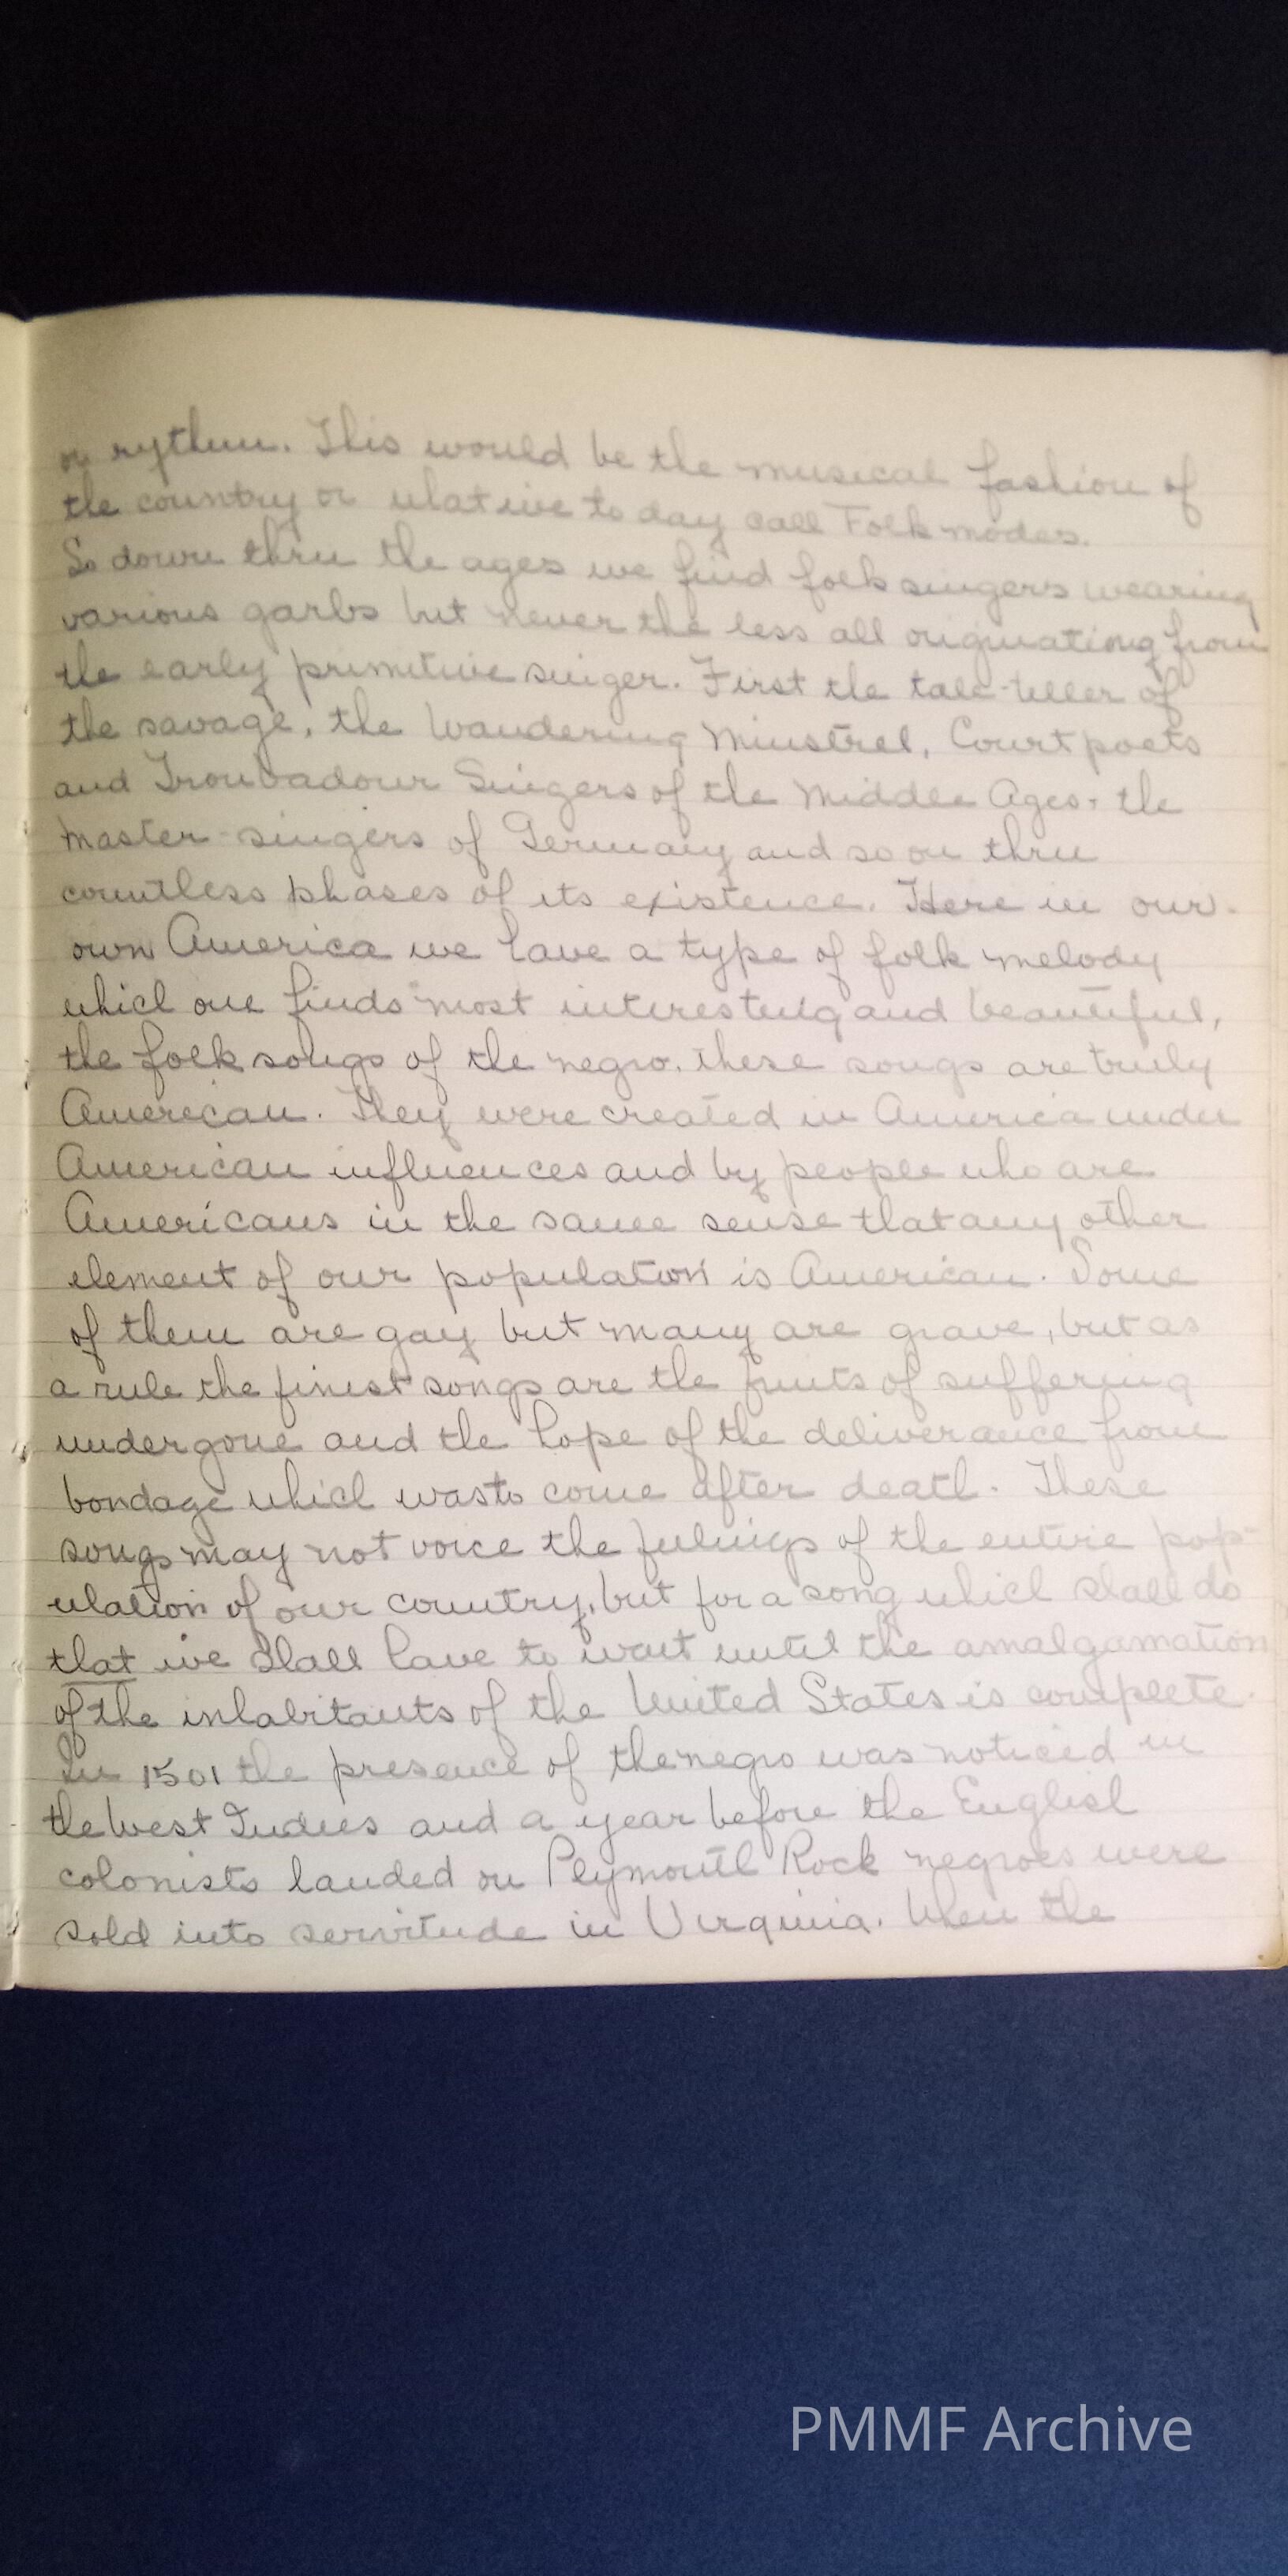 or rythm. This would be the musical fashion of
the country or what we to day call Folk modes.
So down thru the ages we find folk singers wearing
various garbs but never the less all originationg from
the early primitive singer. First the tale-teller of
the savage, the Wandering Minstrel, Court poets
and Troubadour Singers of the Middle Ages, the
Master-singers of Germany and so on thru
countless phases of its existence. Here in our
own America we have a type of folk melody
which one finds most interesting and beautiful,
the folk songs of the negro. These songs are truly
American. They were created in America under
American influences and by people who are
Americans in the same sense that any other
element of our population is American. Some
of them are gay but many are grave, but as
a rule the finest songs are the fruits of suffering
undergone and the hope of the deliverance from
bondage which was to come after death. These
songs may not voice the feelings of the entire pop-
ulation of our country, but for a song which shall do
that we shall have to wait until the amalgamation
of the inhabitants of the United States is complete.
In 1501 the presence of the negro was noticed in
the West Indies and a year before the English
colonists landed on Plymouth Rock negroes were
sold into servitude in Virginia. When the
PMMF Archive